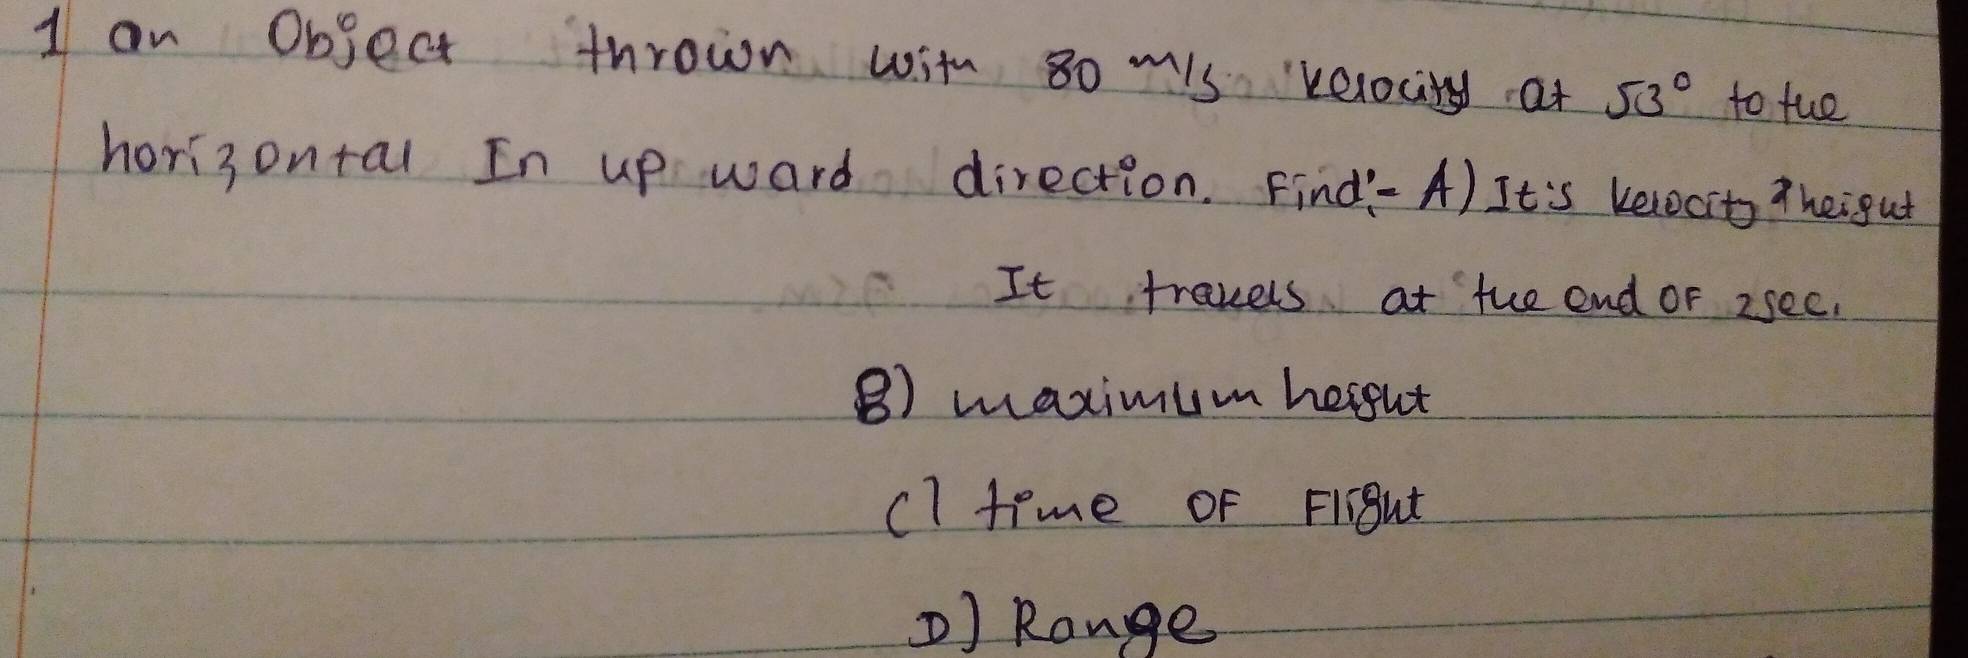 1 an Object thrown with 80 m/s velocity at 53° to the
horizontal In up ward direction. Find:- A) It's velocity & height
It travels at the end OF 2sec.
B) maximum height
C) time OF Flight
D) Range